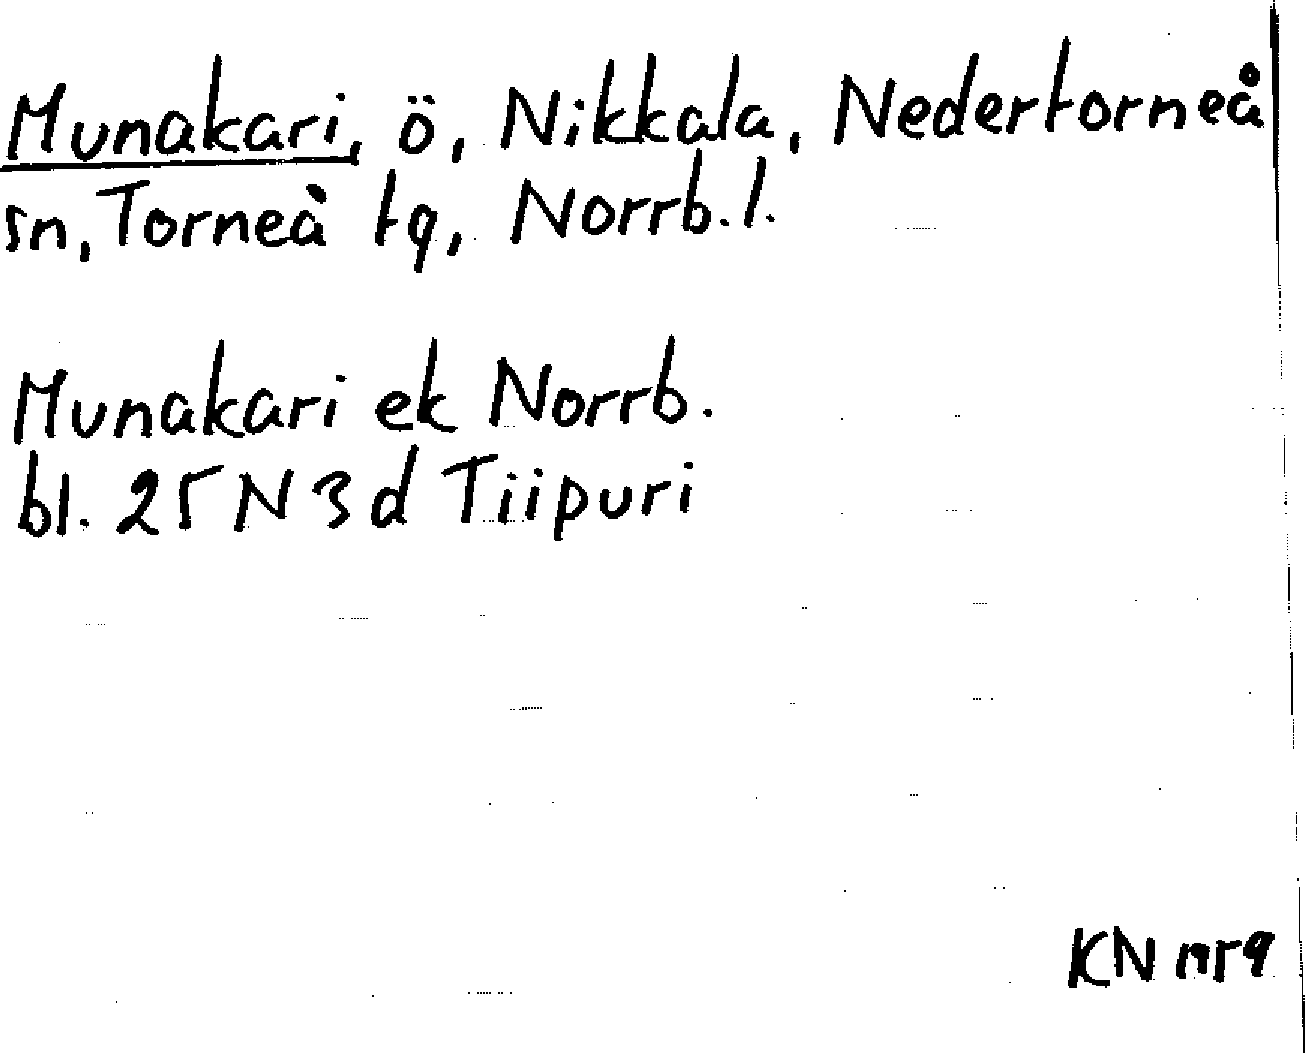 Munakari, ö, Nikkala, Nedertorneå
sn, Torneå tg, Norrb.l.
Munakari ek Norrb.
bl. 25 N 3 d Tiipuri
KN nr 9